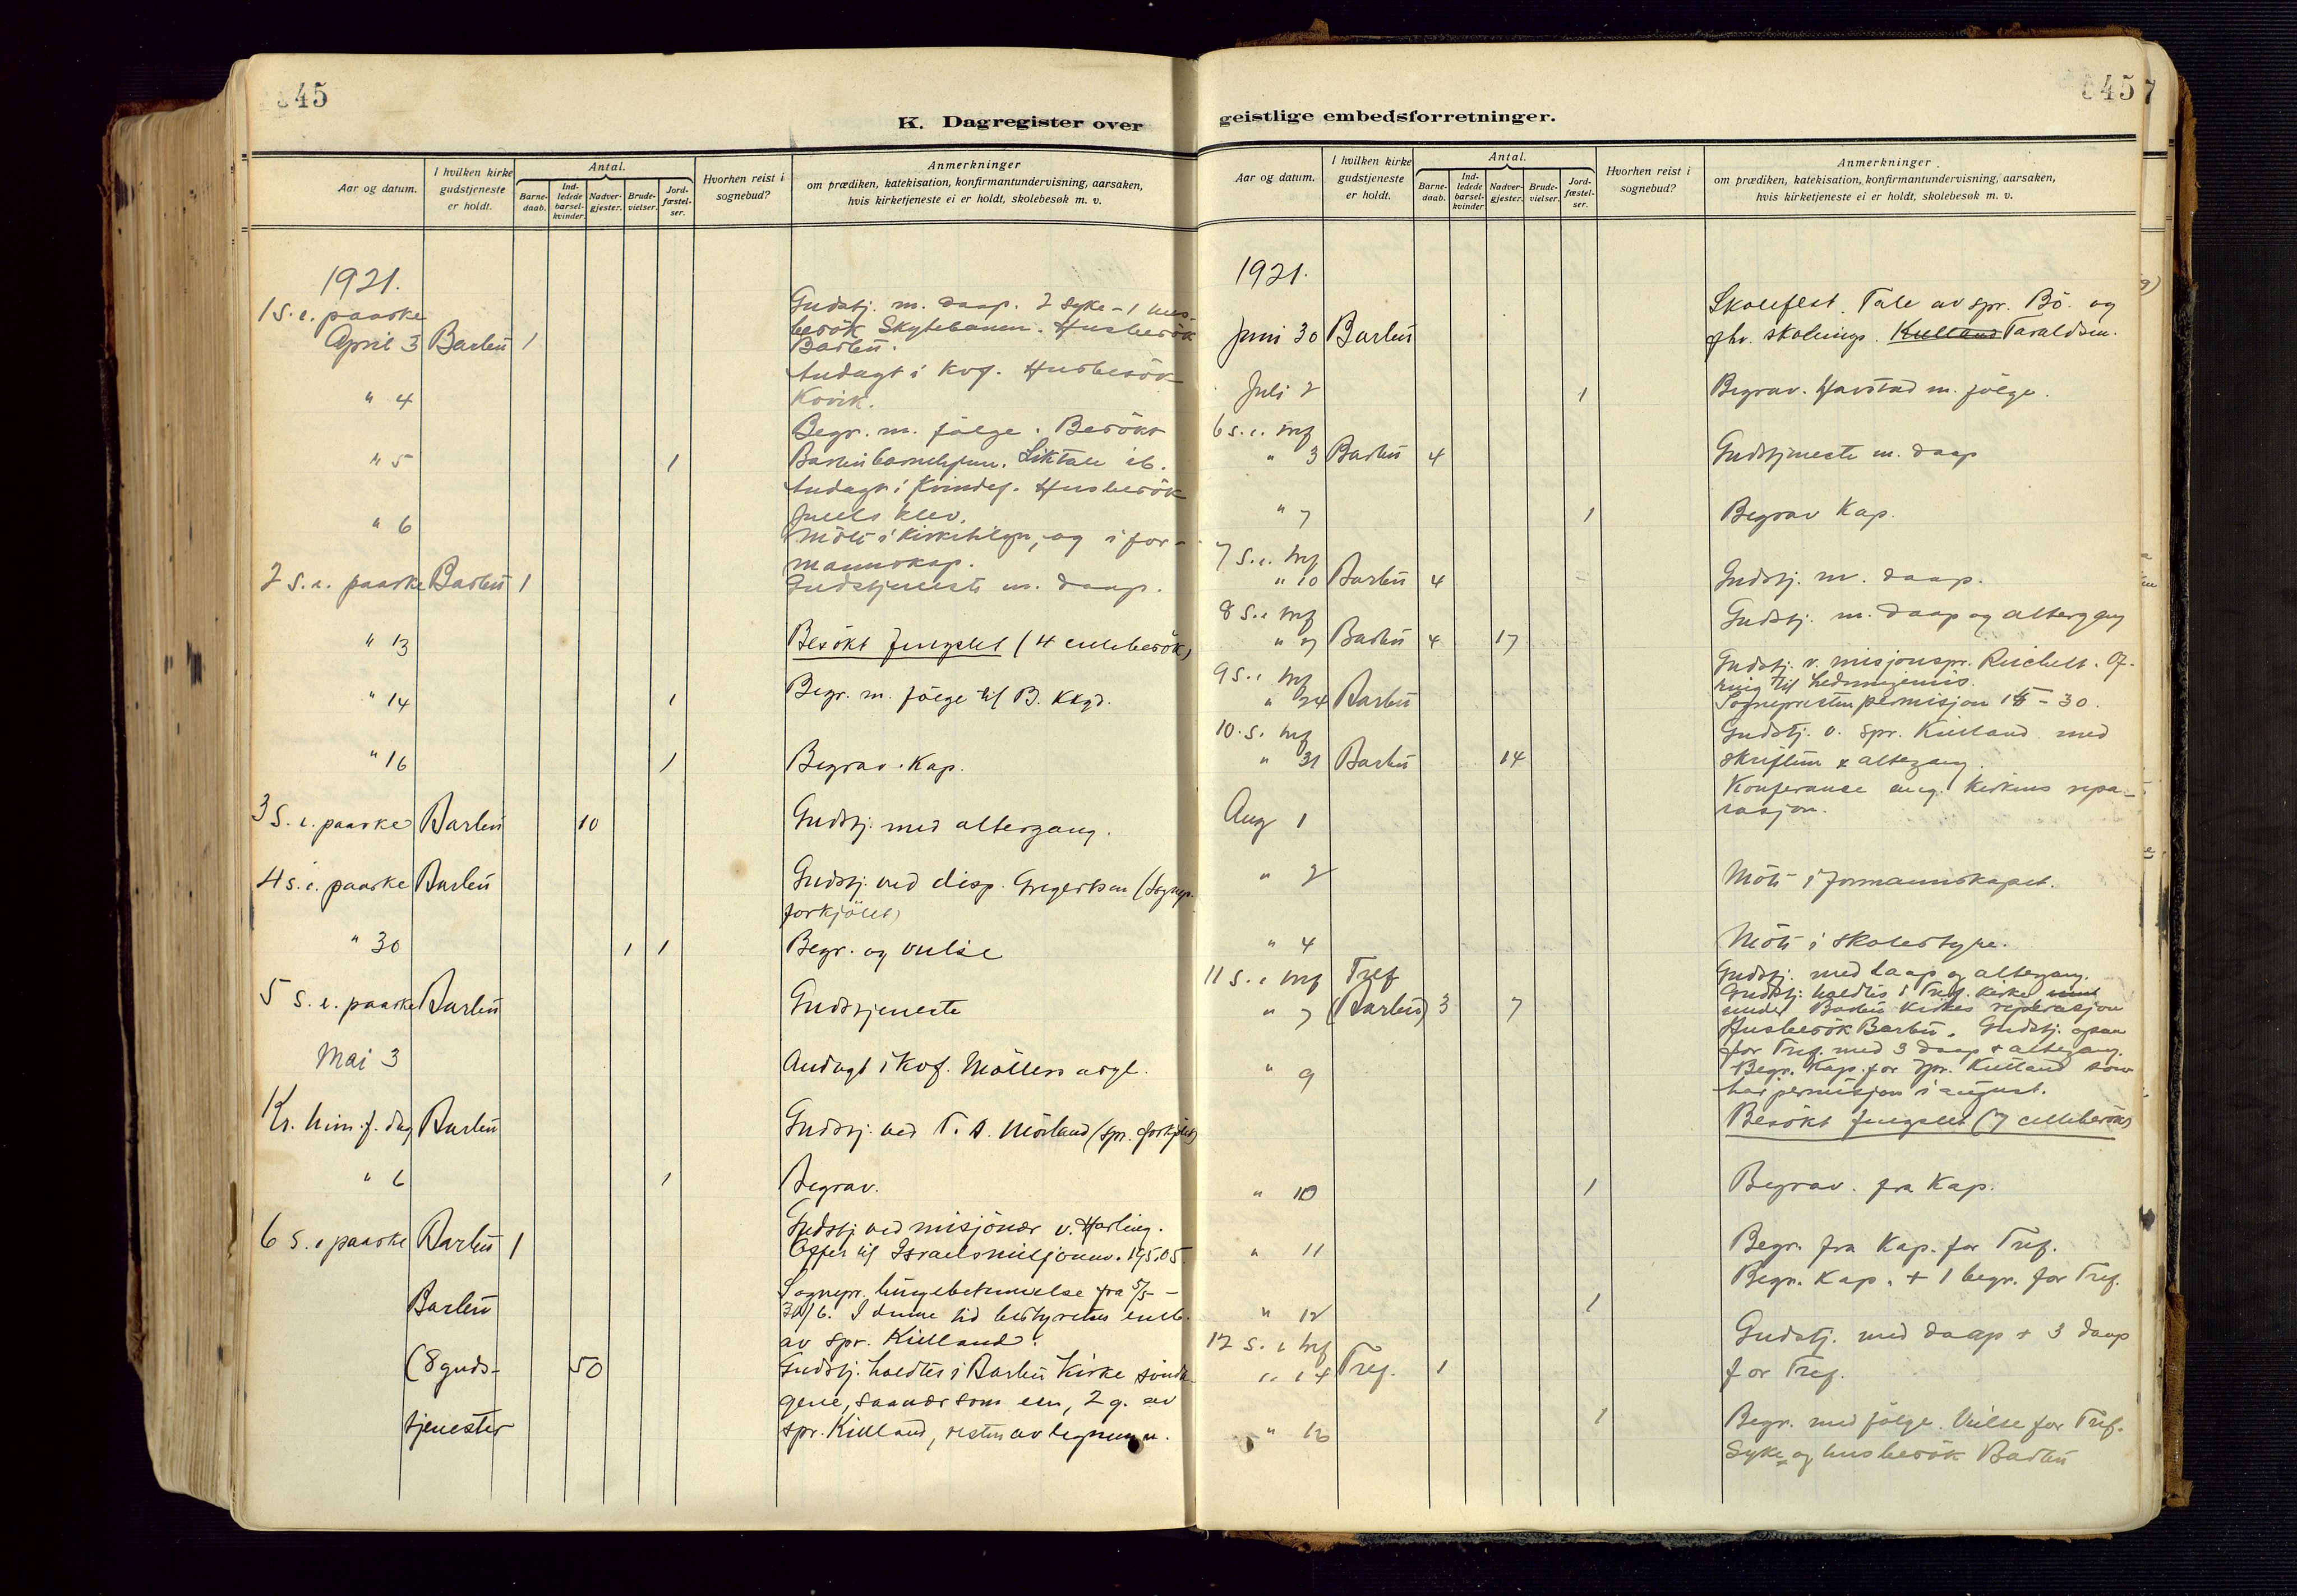 345
K. Dagregister over
Aar og datum.
I hvilken kirke gudstjeneste er holdt.
Antal.
Barne-daab.
Ind-ledede barsel-kvinder.
Nadver-gjester.
Brude-vielser.
Jord-fæstel-ser.
Hvorhen reist i sognebud?
Anmerkninger
om prædiken, katekisation, konfirmantundervisning, aarsaken,
hvis kirketjeneste ei er holdt, skolebesøk m. v.
1921.
1 S. e. paaske
Gudstj. m. daap. 2 syke - 1 hus-
besök Skytebanen. Husbesök
April 3 Barbu 1
Barbu.
Andagt i Kvf. Husbesök
" 4
Kovik.
Begr. m. fölge. Besökt
" 5 1
Barbu barnehjem. Liktale ib.
Andagt i Kvindef. Husbesök
" 6
Juells klev.
Möte i kirketilsyn, og i for-
mannskap.
2 S. e. paaske Barbu 1
Gudstjeneste m. daap.
" 13
Besökt fengslet (4 cellebesök)
" 14 1 Begr. m. fölge til B. Kkgd.
" 16 1 Begrav. Kap.
3 S. e. paaske Barbu 10 Gudstj. med altergang.
4 s. e. paaske Barbu Gudstj. ved disp. Gregertsen (Sognepr.
forkjölet)
" 30 1 1 Begr. og vielse
5 S. e. paaske Barbu Gudstjeneste
Mai 3 Andagt i Kvf. Möllers asyl.
Kr. him. f. dag Barbu Gudstj. ved T. A. Mörland (spr. forkjölet)
" 6 1 Begrav.
6 S. e. paaske Barbu 1 Gudstj ved misjönær v. Harling.
Offer til Israelsmisjonen. 195.05.
Barbu Sognepr. bygebekjemmelse fra 5/5 -
30/6. I denne tid bestyrtes emb.
av spr. Kielland.
(8 guds- 50 Gudstj. holdtes i Barbu Kirke sönda-
gene, saanær som een, 2 g. av
tjenester spr. Kielland, resten av legmenn.
345
geistlige embedsforretninger.
Aar og datum.
I hvilken kirke gudstjeneste er holdt.
Antal.
Barne-daab.
Ind-ledede barsel-kvinder
Nadver-gjester.
Brude-vielser.
Jord-fæstel-ser.
Hvorhen reist i sognebud?
Anmerkninger
om prædiken, katekisation, konfirmantundervisning, aarsaken,
hvis kirketjeneste ei er holdt, skolebesøk m. v.
1921.
Skolefest. Tale av spr. Bö. og
Juni 30 Barbu fhv. skoleinsp. Kielland Taraldsen.
Juli 2 1 Begrav. Havstad m. fölge.
6 s. e. tref
" 3 Barbu 4 Gudstjeneste m. daap
" 7 1 Begrav Kap.
7 S. e. tref
" 10 Barbu 4 Gudstj. m. daap.
8 S. e tref
" 17 Barbu 4 17 Gudstj. m. daap og altergang
9 S. e tref
Gudstj. v. misjonspr. Reichelt. Of-
" 24 Barbu
Sogneprestens permisjon 15 - 30.
10. S. tref
Gudstj. v. spr. Kielland med
" 31 Barbu 14 skriftem & altergang.
Konferanse ang. kirkens repa-
Aug 1 rasjon.
" 2 Möte i formannskapet.
" 4 Möte i skolestyre.
11 S. e tref Tref
Gudstj. med daap og altergang.
Gudstj. holdtes i Tref. kirke
" 7 (Barbu) 3 7 under Barbu kirkes reperasjon
Husbesök Barbu. Gudstj. ogsaa
for Tref. med 3 daap & altergang.
" 9 Begr. Kap. for spr. Kielland som
har permisjon i august.
Besökt fengslet (7 cellebesök)
" 10 1 Begrav. fra Kap.
" 11 Begr. fra Kap. for Tref.
Begr. Kap. + 1 begr. for Tref.
" 12 1
12 S. e tref
Gudstj. med daap + 3 daap
" 14 Tref. 1 for Tref.
" 16 1 Begr. med fölge. Vielse for Tref.
Syke og husbesök Barbu